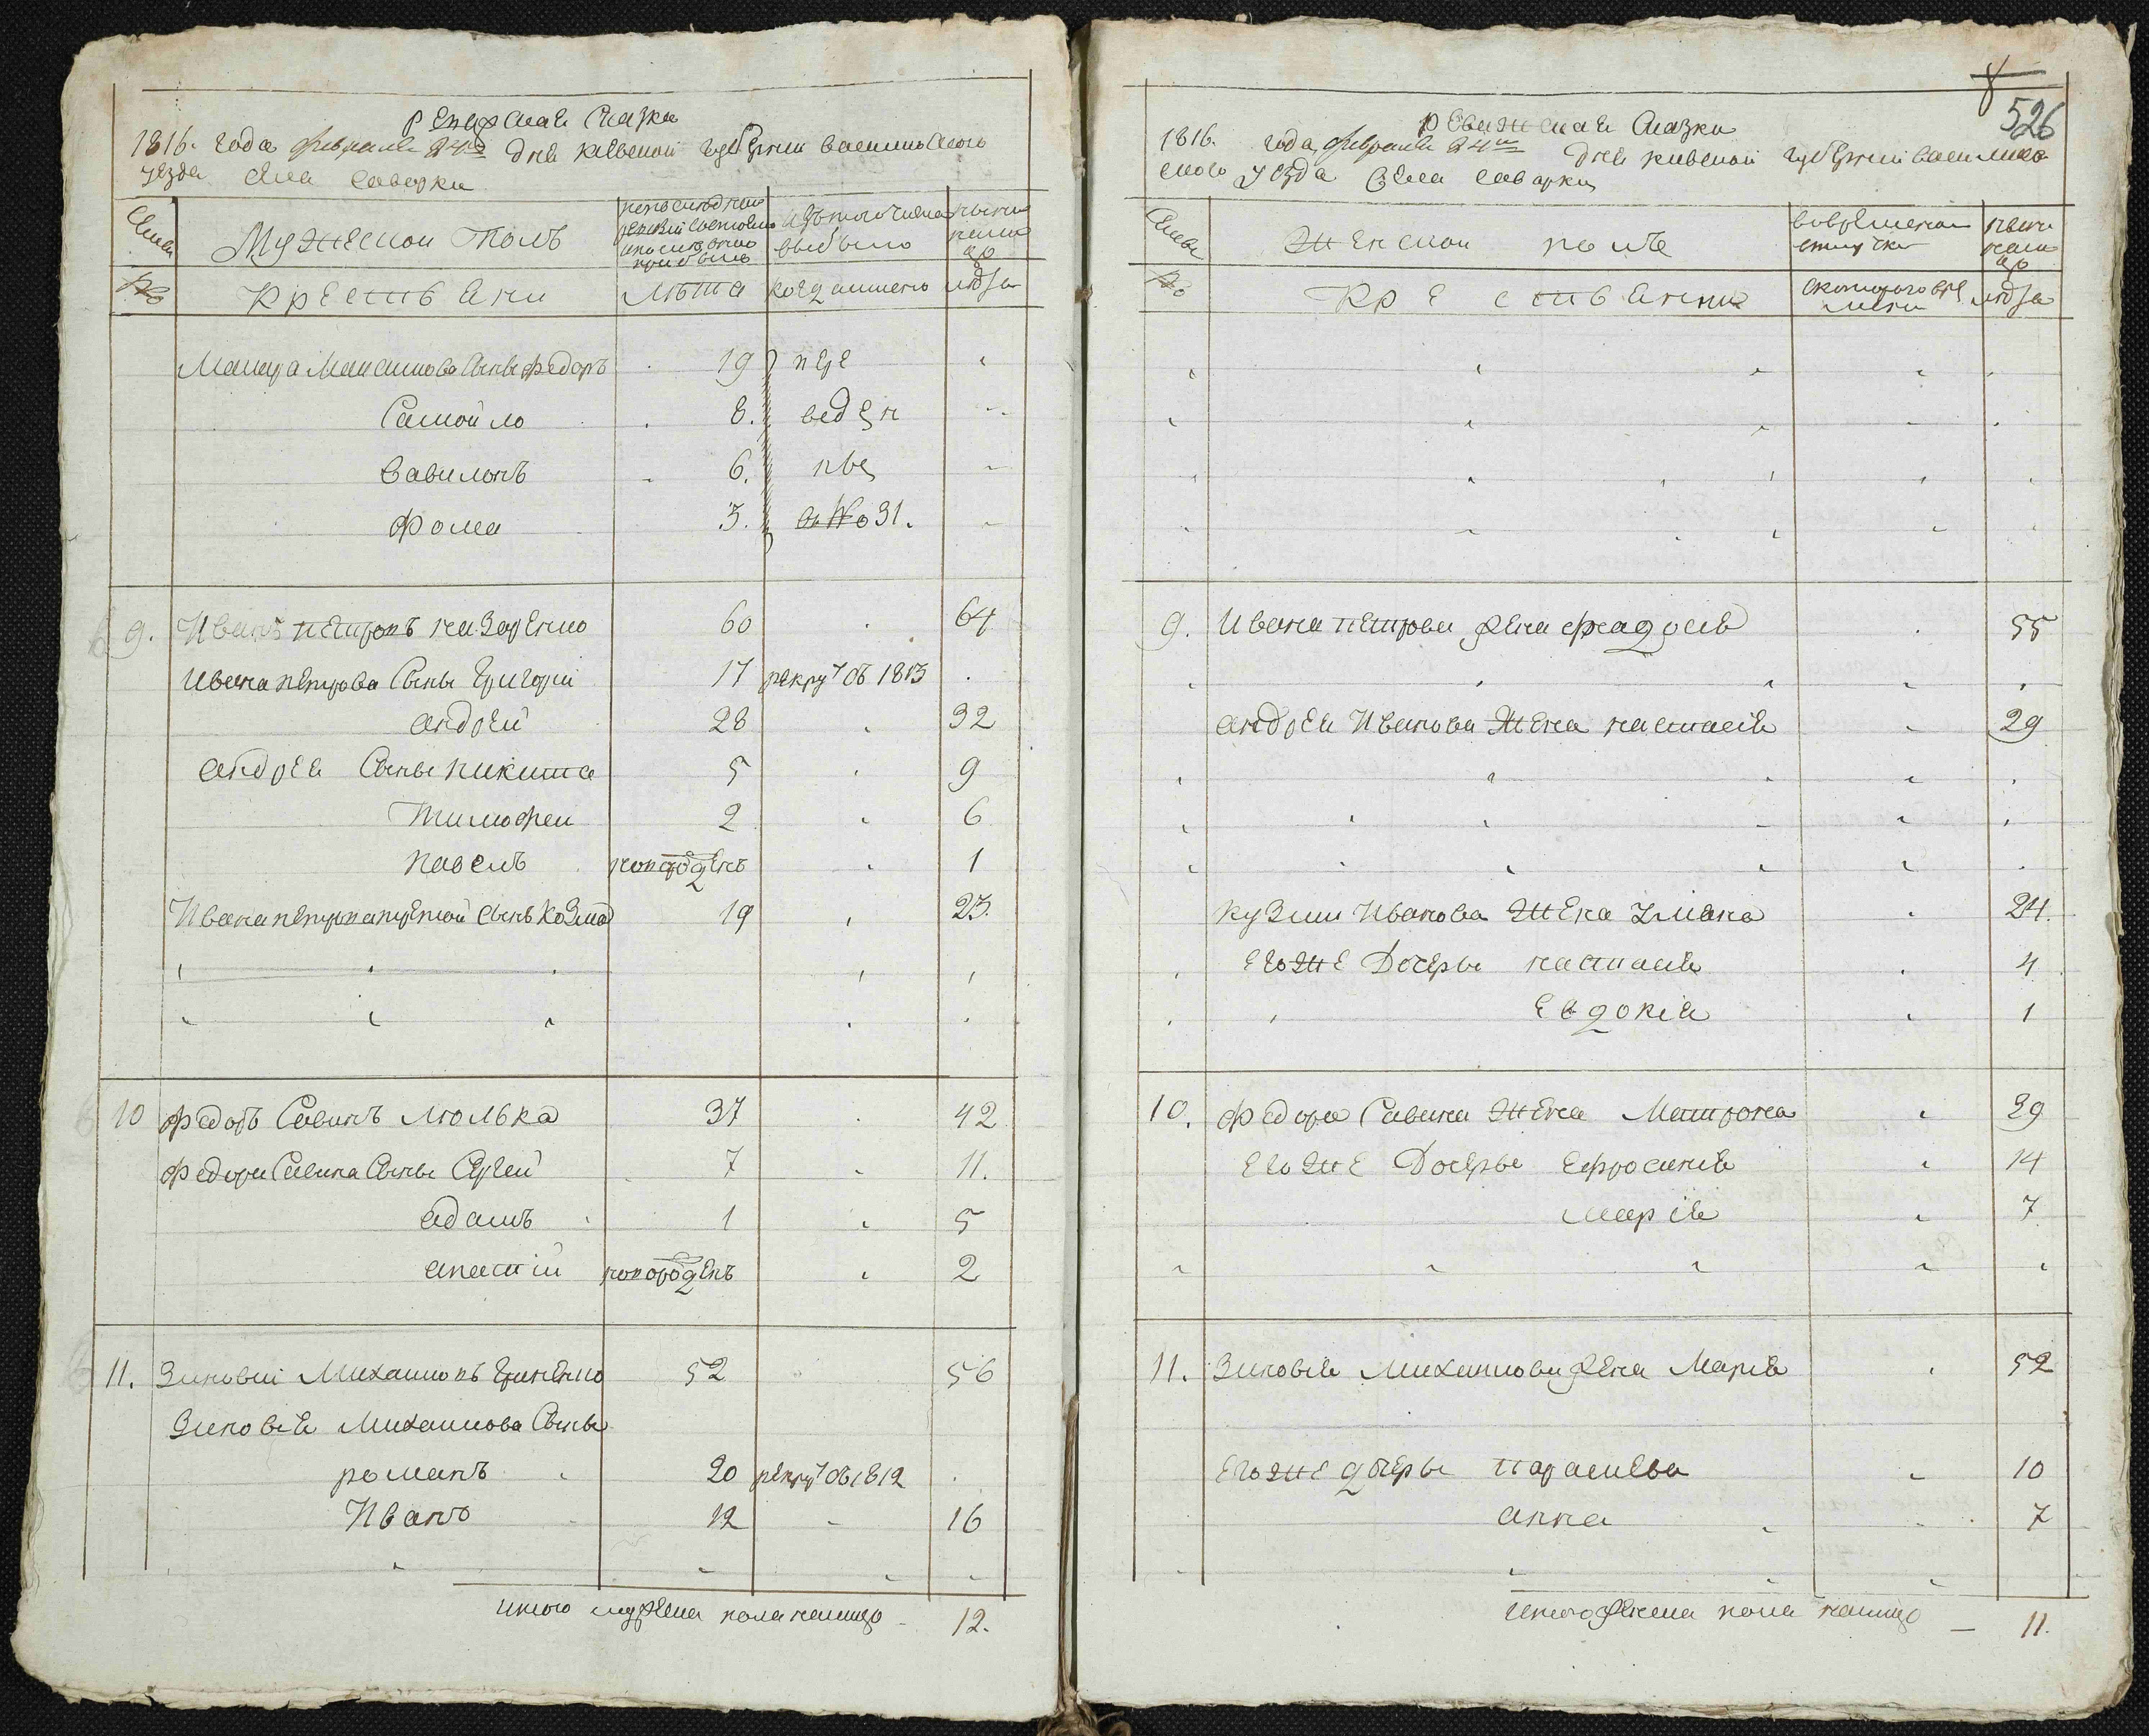 ревижская сказка
1816. года февраля 24го дня киевской губернии василковского
уезда села саварки
Семьи Мужеской полъ по последней ревизии состояло и после оной прибыло изъ того числа выбыло ныне на лицо
№ Крестьяни Лѣта когда имено лѣта
Мацура Максимова Сынъ федоръ 19
Самойло 8.
вавилонъ 6.
фома 3.
пере
веден
ны
в № 31.
9. Иванъ петровъ назаренко 60 64
Ивана петрова Сынъ Григорий 17 рекрутъ въ 1813
андрей 28 32
андрея Сынъ никита 5 9
тимофеи 2 6
павелъ новорожденъ 1
Ивана петрова третой сынъ козма 19 23.
10 федоръ Савинъ люлька 37 42
федора Савина Сынъ Сергеи 7 11.
адамъ 1 5
новорожденъ 2
11. Зиновии Михаиловъ Гриненко 52 56
Зиновия Михаилова Сынъ
романъ 20 рекрутъ въ 1812
Иванъ 12 16
итого мужеска пола налицо 12.
8
526
ревижская Сказка
1816. года, февраля 24го дня киевской губернии василков
ского уезда села саварки
Семьи Женской полъ во временной отлучке ныне на лицо
№ Крестьянки с которого времени лѣта
9. Ивана петрова жена феодосия 55
андрея Иванова жена настасия 29
кузми Иванова жена улияна 24.
его же Дочеръ настасия 4
Евдокия 1
10. федора Савина жена Матрона 29
его же Дочеръ Ефросиния 14
мария 7
11. Зиновия Михаилова жена Мария 52
его же дочеръ параскева 10
анна 7
итого женска пола налицо 11.